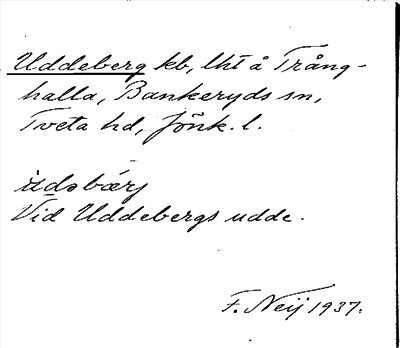 Uddeberg kb, lht å Trång-
halla, Bankeryds sn,
Tveta hd, Jönk. l.
ùdəbærj
Vid Uddebergs udde.
F. Neij 1937.